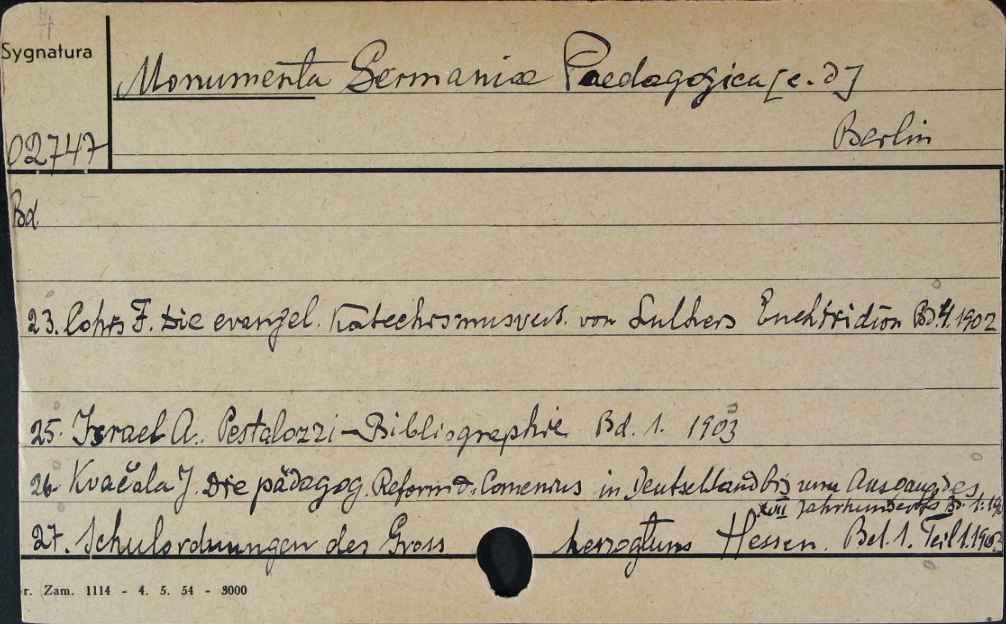 Sygnatura
Monumenta Germaniae Paedagogica [c. d]
02747
Berlin
Bd.
23. Cohrs F. Die evangel. Katechismusvers. von Luthers Enchiridion Bd. 4. 1902
25. Israel A. Pestalozzi-Bibliographie Bd. 1. 1903
26. Kvačala J. Die pädagog. Reform d. Comenius in Deutschland bis zum Ausgang des
XVII Jahrhunderts Bd. 1. 19
27. Schulordnungen des Gross herzogtums Hessen. Bd. 1. Teil 1.
r. Zam. 1114 - 4. 5. 54 - 3000